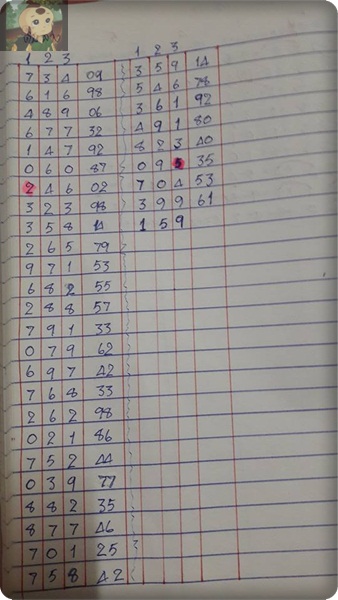 1 2 3
7 3 4 09
6 1 6 98
4 8 9 06
6 7 7 32
1 4 7 92
0 6 0 87
2 4 6 02
3 2 3 98
3 5 8 14
2 6 5 79
9 7 1 53
6 8 2 55
2 8 8 57
7 9 1 33
0 7 9 62
6 9 7 42
7 6 8 33
2 6 2 98
0 2 1 86
7 5 2 44
0 3 9 77
8 8 2 35
8 7 7 46
7 0 1 25
7 5 8 42
1 2 3
3 5 9 14
5 4 6 78
3 6 1 92
4 9 1 80
8 2 3 40
0 9 5 35
7 0 4 53
3 9 9 61
1 5 9